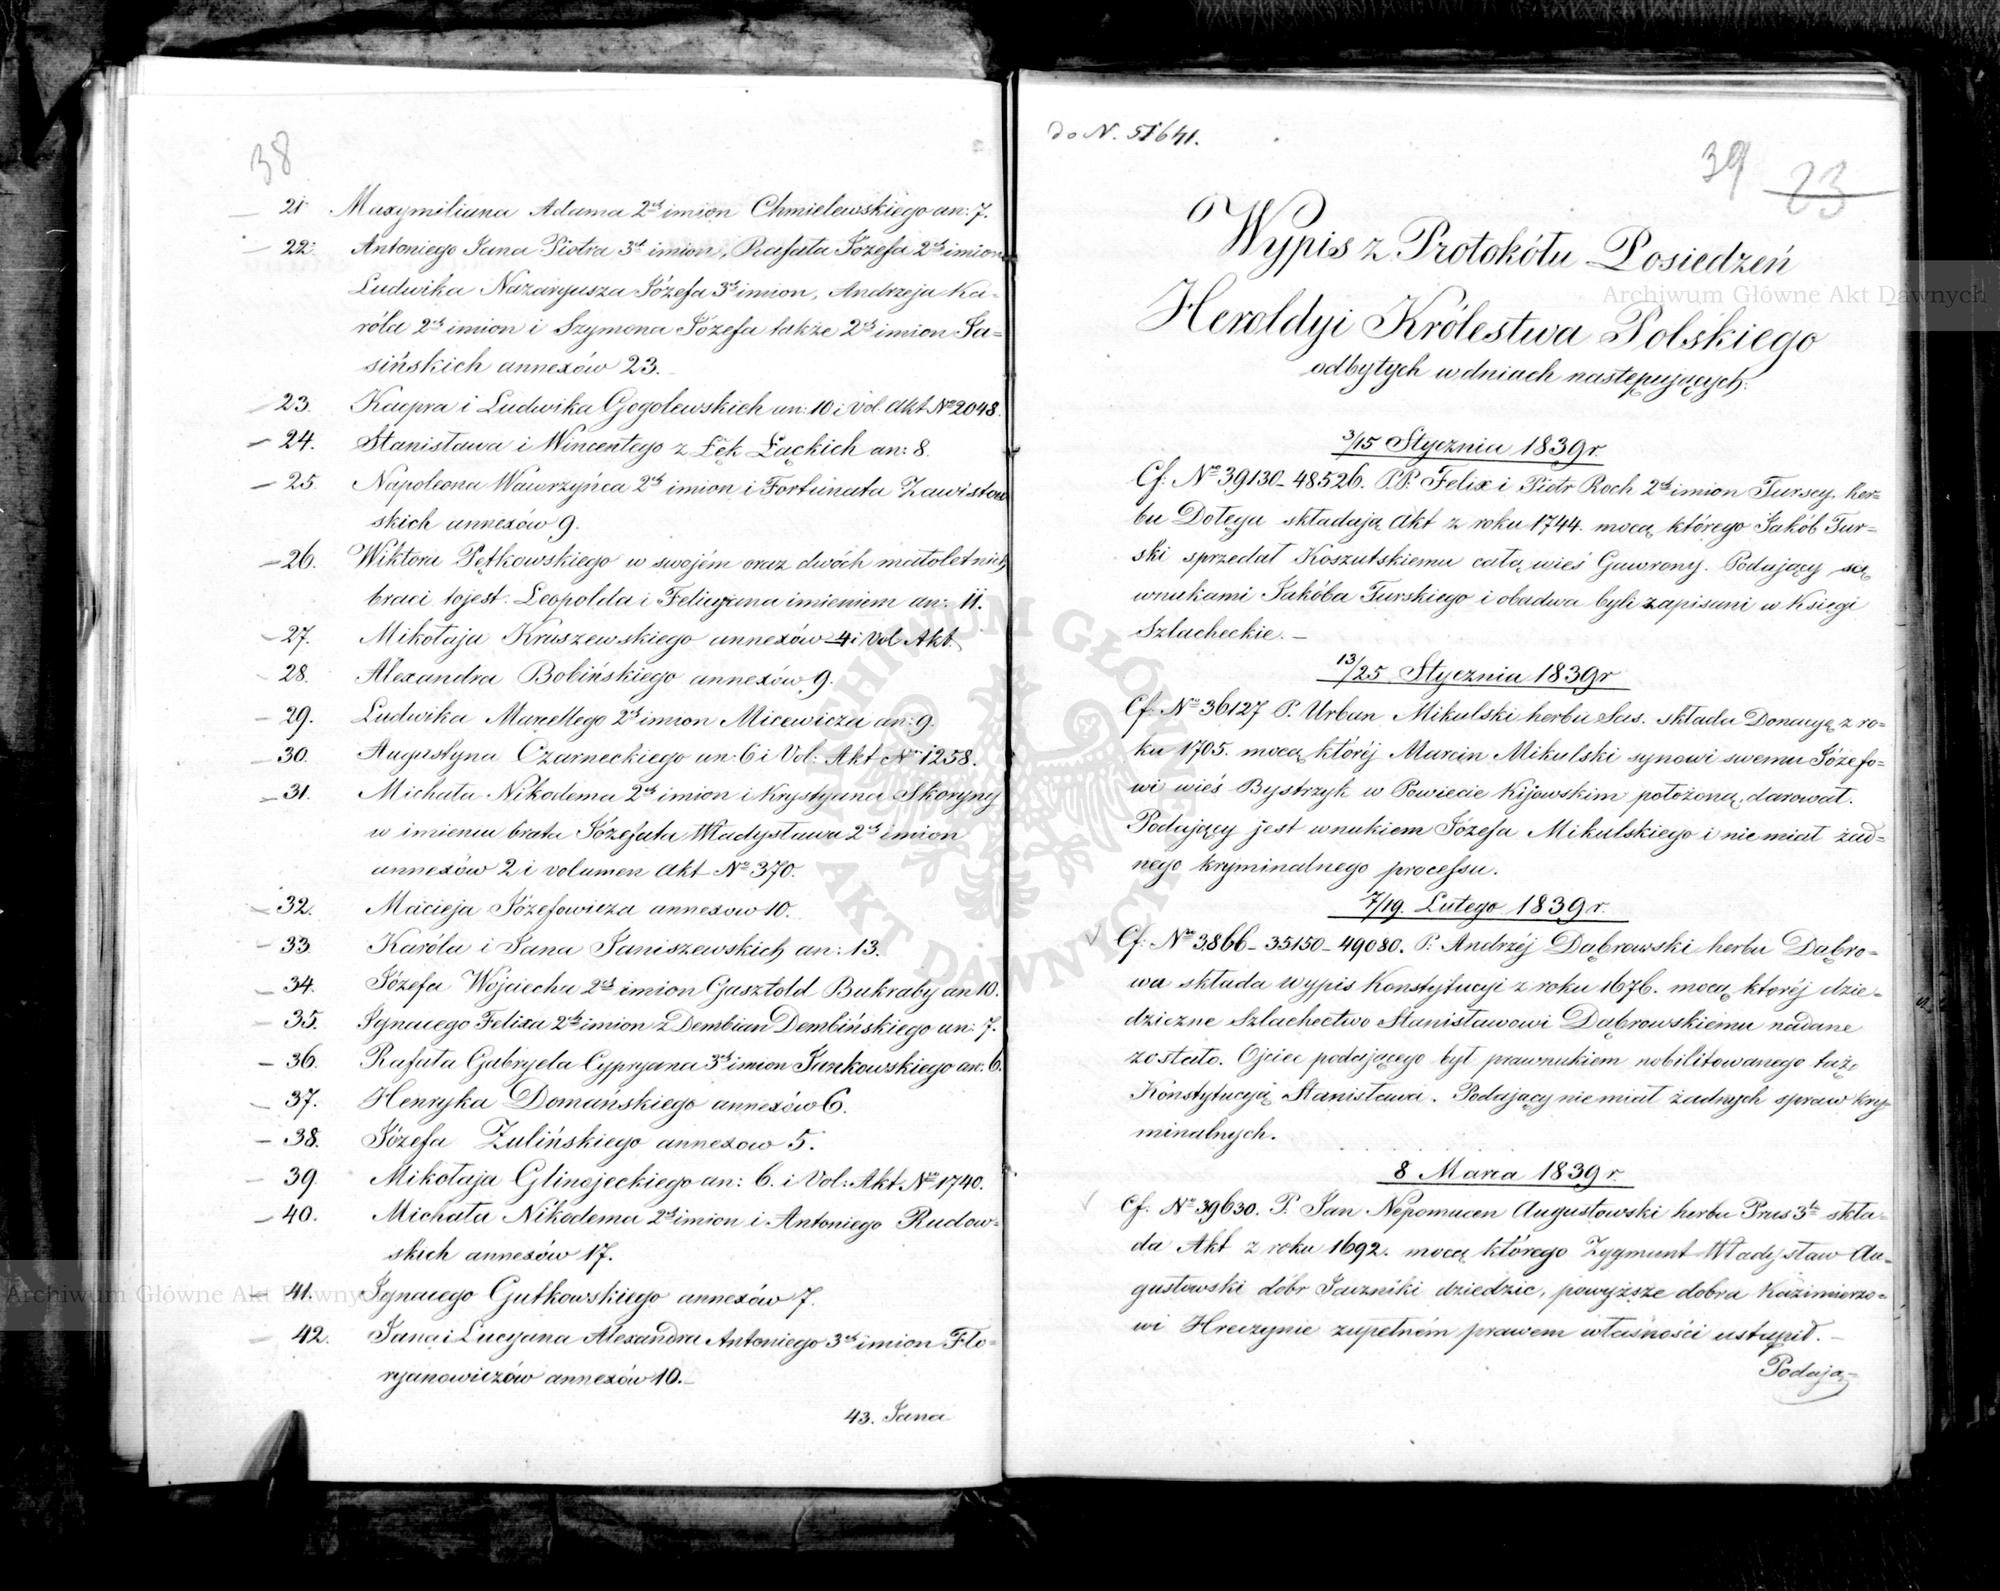 38
21 Maxymiliana Adama 2ch imion Chmielewskiego an: 7.
22. Antoniego Jana Piotra 3ch imion, Rafała Józefa 2ch imion
Ludwika Nazaryusza Józefa 3ch imion, Andrzeja Ka-
róla 2ch imion i Szymona Józefa także 2ch imion Ja-
sińskich annexów 23.
23. Kacpra i Ludwika Gogolewskich an: 10 i Vol. Akt No 2048.
24. Stanisława i Wincentego z Łęk Łąckich an: 8.
25. Napoleona Wawrzyńca 2ch imion i Fortunata Zawistow
skich annexów 9.
26. Wiktora Pętkowskiego w swojém oraz dwóch małoletnich
braci tojest: Leopolda i Felicyana imieniem an: 11.
27. Mikołaja Kraszewskiego annexów 4 i Vol Akt.
28. Alexandra Bobińskiego annexów 9.
29. Ludwika Marcellego 2ch imion Micewicza an: 9.
30. Augustyna Czarneckiego an: 6 i Vol: Akt No 1258.
31. Michała Nikodema 2ch imion i Krystyana Skoryny
w imieniu brata Józefata Władysława 2ch imion
annexów 2 i volumen Akt No 370.
32. Macieja Józefowicza annexow 10.
33. Karóla i Jana Janiszewskich an: 13.
34. Józefa Wojciecha 2ch imion Gasztold Bukraby an 10.
35. Ignacego Felixa 2ch imion z Dembian Dembińskiego an: 7.
36. Rafała Gabryela Cypryana 3ch imion Jankowskiego an: 6.
37. Henryka Domańskiego annexów 6.
38. Józefa Zulińskiego annexow 5.
39. Mikołaja Glinojeckiego an: 6. i Vol: Akt No 1740.
40. Michała Nikodema 2ch imion i Antoniego Rudow-
skich annexów 17.
41. Ignacego Gutkowskiego annexów 7.
42. Jana i Lucyana Alexandra Antoniego 3ch imion Flo-
ryanowiczów annexów 10.
43. Jana
do N. 51641.
39 23
Wypis z Protokółu Posiedzeń
Heroldyi Królestwa Polskiego
odbytych w dniach następujących:
3/15 Stycznia 1839 r.
Cf: No 39130-48526. P.P. Felix i Piotr Roch 2ch imion Turscy. her-
bu Dołęga składają Akt z roku 1744. mocą którego Jakób Tur-
ski sprzedał Koszutskiemu całą wieś Gawrony. Podający się
wnukami Jakóba Turskiego i obadwa byli zapisani w Księgi
Szlacheckie.
13/25 Stycznia 1839 r
Cf: No 36127 P. Urban Mikulski herbu Sas. składa Donacyę z ro-
ku 1705. mocą którój Marcin Mikulski synowi swemu Józefo-
wi wieś Bystrzyk w Powiecie Kijowskim położoną, darował.
Podający jest wnukiem Józefa Mikulskiego i nie miał żad-
nego kryminalnego processu.
7/19. Lutego 1839 r.
Cf: No 3866-35150-49080. P: Andrzéj Dąbrowski herbu Dąbro-
wa składa wypis Konstytucyi z roku 1676. mocą któréj dzie-
dziczne Szlachectwo Stanisławowi Dąbrowskiemu nadane
zostało. Ojciec podającego był prawnukiem nobilitowanego tąż
Konstytucyją Stanisława. Podający nie miał żadnych spraw kry-
minalnych.
8 Marca 1839 r.
Cf: No 39630. P. Jan Nepomucen Augustowski herbu Prus 3o skła-
da Akt z roku 1692. mocą którego Zygmunt Władysław Au-
gustowski dóbr Saczniki dziedzic, powyższe dobra Kazimierzo-
wi Hreczynie zupełném prawem własności ustąpił.
Podają-
Archiwum Główne Akt Dawnych
Archiwum Główne Akt Dawnych
ARCHIWUM GŁÓWNE
AKT DAWNYCH